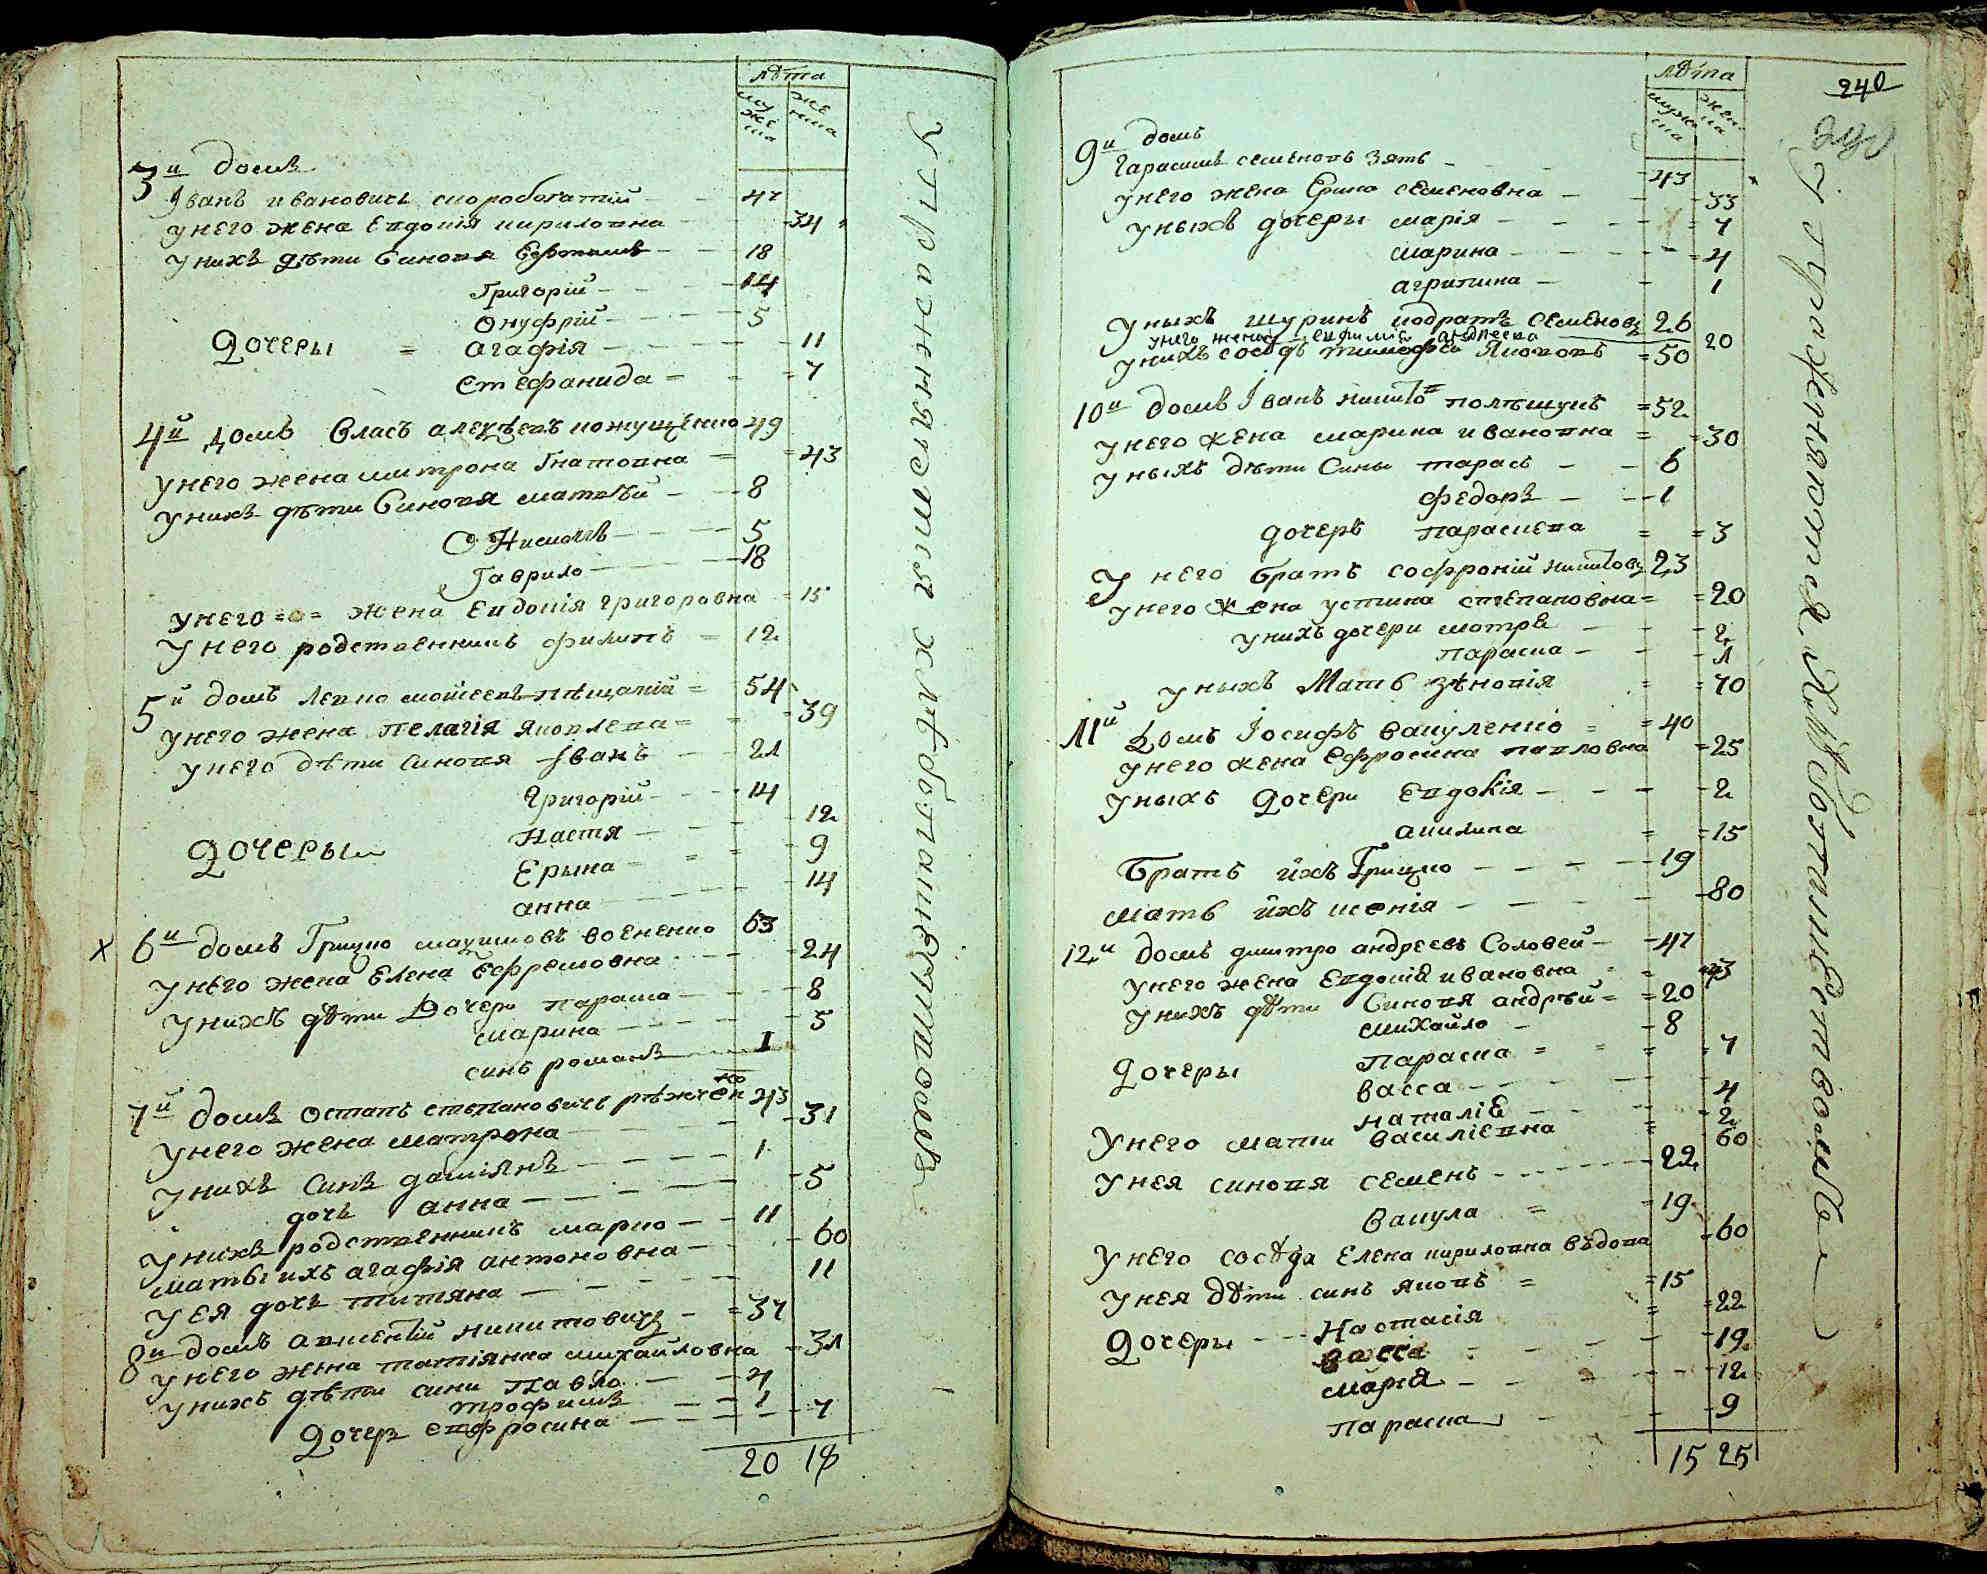 лѣта
муже ска
же нска
3й домъ
Іванъ ивановичъ скоробогатій 47
унего жена Евдокія кириловна 34
унихъ дѣти Синовя Ефтимъ 18
Григорій 14
Онуфрій 5
Дочеры агафія 11
Стефанида 7
4й домъ власъ алеѯѣевъ кожущенко 49
унего жена митрона Гнатовна 43
унихъ дѣти Синовя матвѣй 8
Онисимъ 5
Гаврило 18
унего жена Евдокія григоровна 15
унего родственникъ филипъ 12
5й домъ Левко мойсеевъ пѣщаній 54
унего жена пелагія яковлева 39
унего дѣти синовя Іванъ 21
Григорій 14
Дочеры Настя 12
Ерына 9
анна 14
х 6й домъ Грицко маѯимовъ воененко 63
унего жена Елена Ефремовна 24
унихъ дѣти Дочери параска 8
марина 5
синъ романъ 1
7й домъ Остапъ степановичъ рѣжченко 43
унего жена матрона 31
унихъ Синъ даміянъ 1
дочъ анна 5
унихъ родственникъ марко 11
матъ ихъ агафія антоновна 60
у ея дочъ титяна 11
8й домъ авксентій никитовичъ 37
унего жена татіянна михайловна 31
унихъ дѣти сини Павло 4
трофимъ 1
Дочер Евфросина 7
20 18
упражняется хлѣбопашествомъ
240
лѣта
мужеска
женска
9й домъ
Гарасимъ семеновъ зять 43
унего жена Ерина семеновна 33
уныхъ дочеры марія 7
марина 4
агрипина 1
Уныхъ шуринъ кодратъ семеновъ 26
унего жена евфимія андреева 20
унихъ сосѣдъ тимофѣй Яковъ 50
10й домъ Іванъ никитовъ полѣшукъ 52
унего жена марина ивановна 30
уныхъ дѣти Сины тарасъ 6
федоръ 1
дочеръ параскева 3
У него братъ софроній никитовъ 23
унего жена устина степановна 20
унихъ дочери мотря 2
параска 1
уныхъ Мать зѣновія 70
11й Домъ Іосифъ вакуленко 40
унего жена Ефросина павловна 25
уныхъ Дочери Евдокія 2
акилина 15
Братъ ихъ Грицко 19
мать ихъ ксенія 80
12й домъ дмитро андреевъ Соловей 47
унего жена Евдокія ивановна 43
унихъ дѣти Синовя андрѣй 20
михайло 8
Дочеры Параска 7
васса 4
наталія 2
Унего мати василіевна 60
Унея синовя семенъ 22
вакула 19
Унего сосѣда Елена кириловна вѣдова 60
Унея дѣти синъ яковъ 15
Дочеры Настасія 22
васса 19
марія 12
параска 9
15 25
упражняются хлѣбопашествомъ